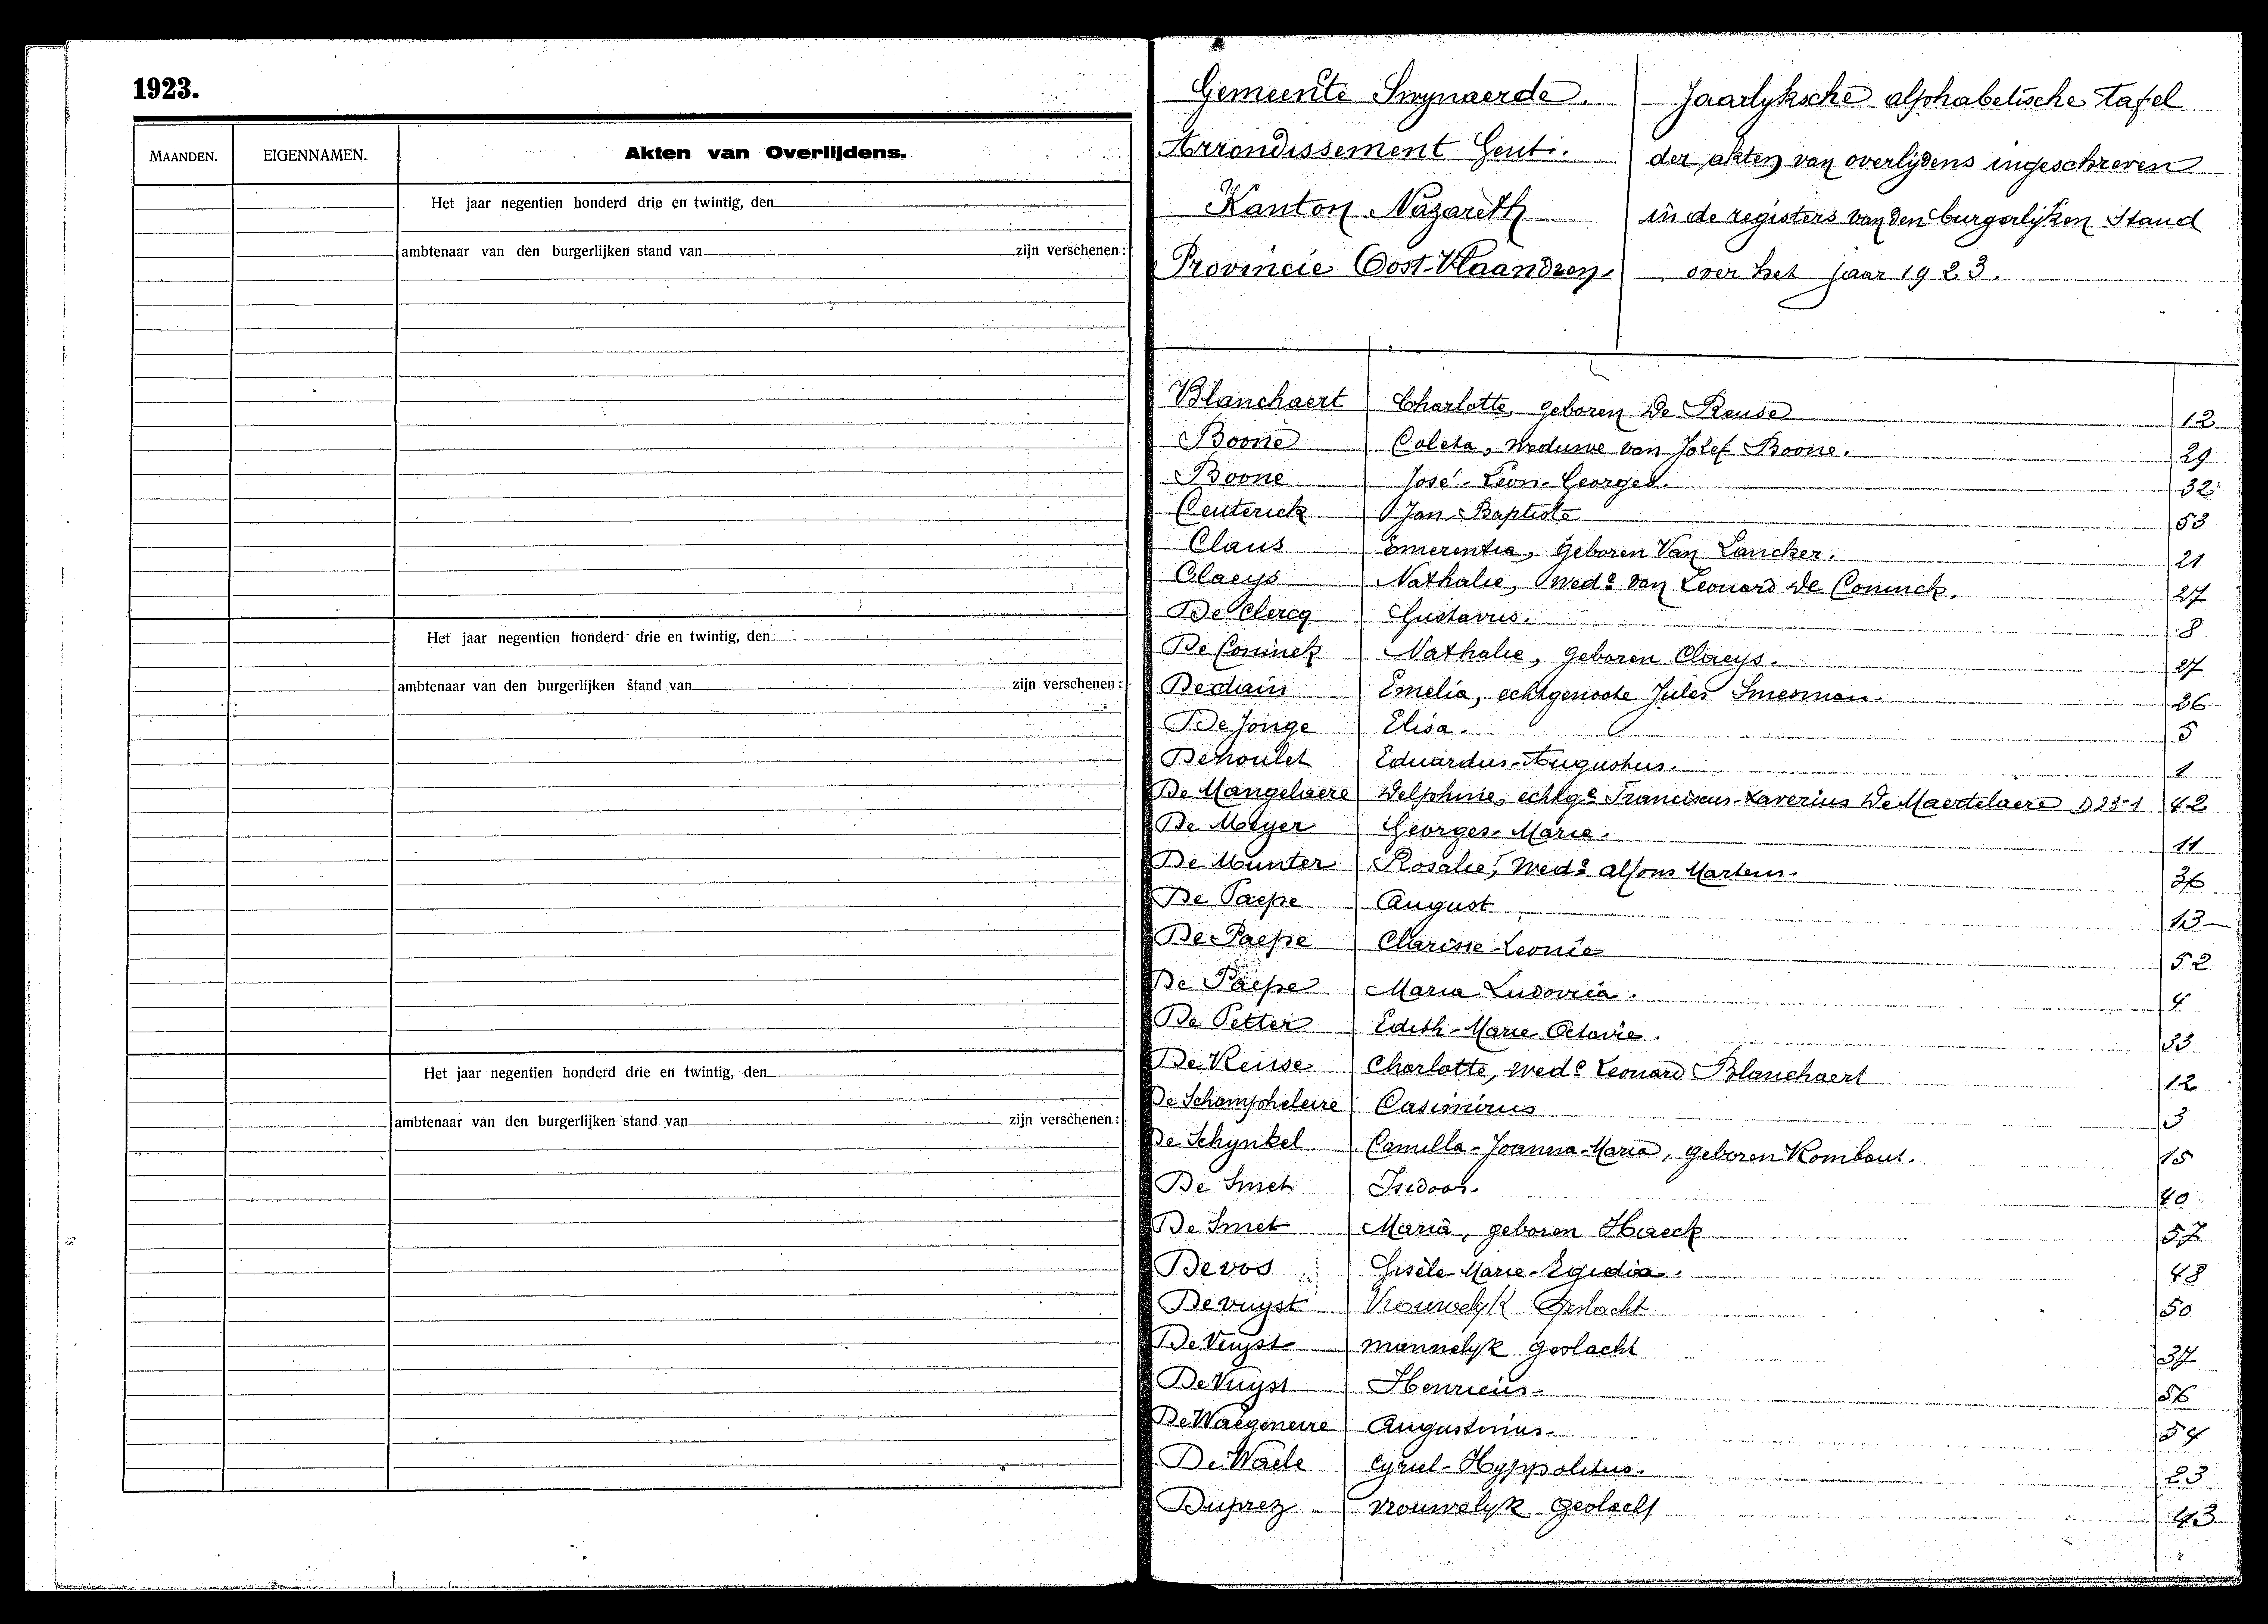 1923.
MAANDEN. EIGENNAMEN. Akten van Overlijdens.
Het jaar negentien honderd drie en twintig, den
ambtenaar van den burgerlijken stand van zijn verschenen:
Het jaar negentien honderd drie en twintig, den
ambtenaar van den burgerlijken stand van zijn verschenen:
Het jaar negentien honderd drie en twintig, den
ambtenaar van den burgerlijken stand van zijn verschenen:
Gemeente Swynaerde.
Arrondissement Gent.
Kanton Nazareth
Provincie Oost-Vlaandren.
Jaarlyksche alphabetische tafel
der akten van overlijdens ingeschreven
in de registers van den burgerlijken Stand
over het jaar 1923.
Blanchaert Charlotte, geboren De Reuse 12
Boone Coleta, weduwe van Jozef Boone. 29
Boone José-Leon-Georges. 32
Ceuterick Jan-Baptiste 53
Claus Emerentia, geboren Van Lancker. 21
Claeys Nathalie, Wede van Leonard De Coninck. 27
De Clercq Gustavus. 8
De Coninck Nathalie, geboren Claeys. 27
Dedain Emelia, echtgenoote Jules Smesman. 26
De Jonge Elisa. 5
Denoulet Eduardus-Augustus. 1
De Mangelaere Delphine, echtge Franciscus-Xaverius De Maertelaere D 23-1 42
De Meyer Georges-Marie. 11
De Munter Rosalie, Wede Alfons Martens. 36
De Paepe August 13
De Paepe Clarisse-Leonie 52
De Paepe Maria Ludovica. 4
De Petter Edith-Marie Octavie. 33
De Reuse Charlotte, wede Leonard Blanchaert 12
De Schampheleire Casimirus 3
De Schynkel Camilla-Joanna-Maria, geboren Rombaut. 15
De Smet Isidoor. 40
De Smet Maria, geboren Haeck 57
Devos Gisèle-Marie-Egidia. 48
Devuyst Vrouwelyk Geslacht 50
De Vuyst mannelyk geslacht 37
De Vuyst Henricus- 56
De Waegeneire Augustinus- 54
De Waele Cyriel-Hyppolitus. 23
Duprez vrouwelyk geslacht 43